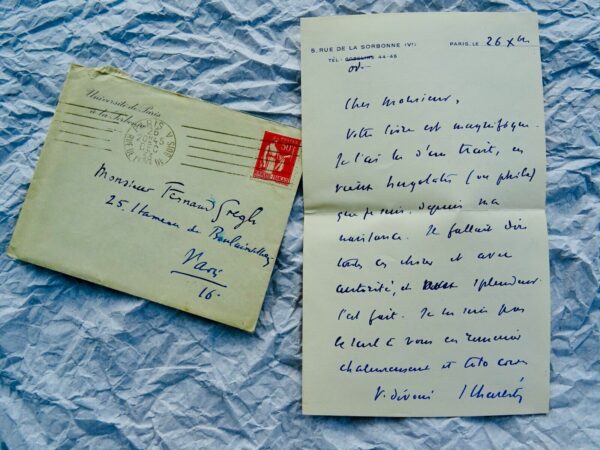 Université de Paris
à la Sorbonne
Monsieur Fernand Gregh
25, Hameau de Boulainvilliers
Paris
16
5, RUE DE LA SORBONNE (Ve)
PARIS, LE 26 XII
TÉL: GOBELINS 44-45
od.
Cher Monsieur,
Votre livre est magnifique.
Je l'ai lu d'un trait, en
vieux hugolatre (ou phile)
que je suis, depuis ma
naissance. Il fallait dire
toutes ces choses et avec
autorité, et splendeur
c'est fait. Je ne serai pas
le seul à vous en remercier
chaleureusement et
V. dévoué